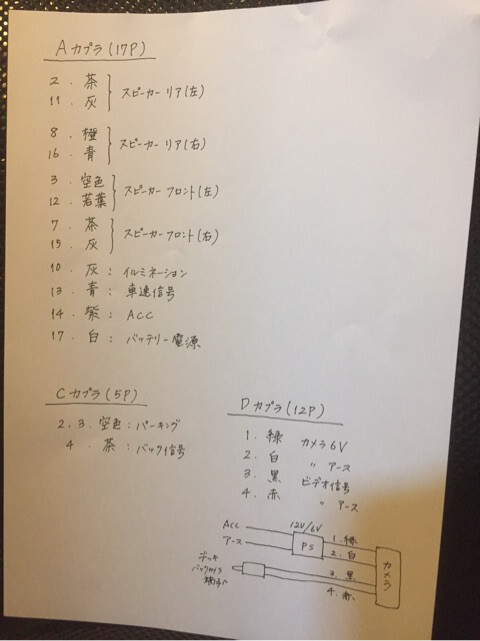 Aカプラ(17P)
2. 茶
11. 灰
スピーカーリア(左)
8. 橙
16. 青
スピーカーリア(右)
3. 空色
12. 若葉
スピーカーフロント(左)
7. 茶
15. 灰
スピーカーフロント(右)
10. 灰: イルミネーション
13. 青: 車速信号
14. 紫: ACC
17. 白: バッテリー電源
Cカプラ(5P)
2.3. 空色: パーキング
4. 茶: バック信号
Dカプラ(12P)
1. 緑 カメラ6V
2. 白 〃 アース
3. 黒 ビデオ信号
4. 赤 〃 アース
12V/6V
ACC
アース
PS
1. 緑
2. 白
3. 黒
4. 赤
カメラ
デッキ
バックカメラ
端子へ